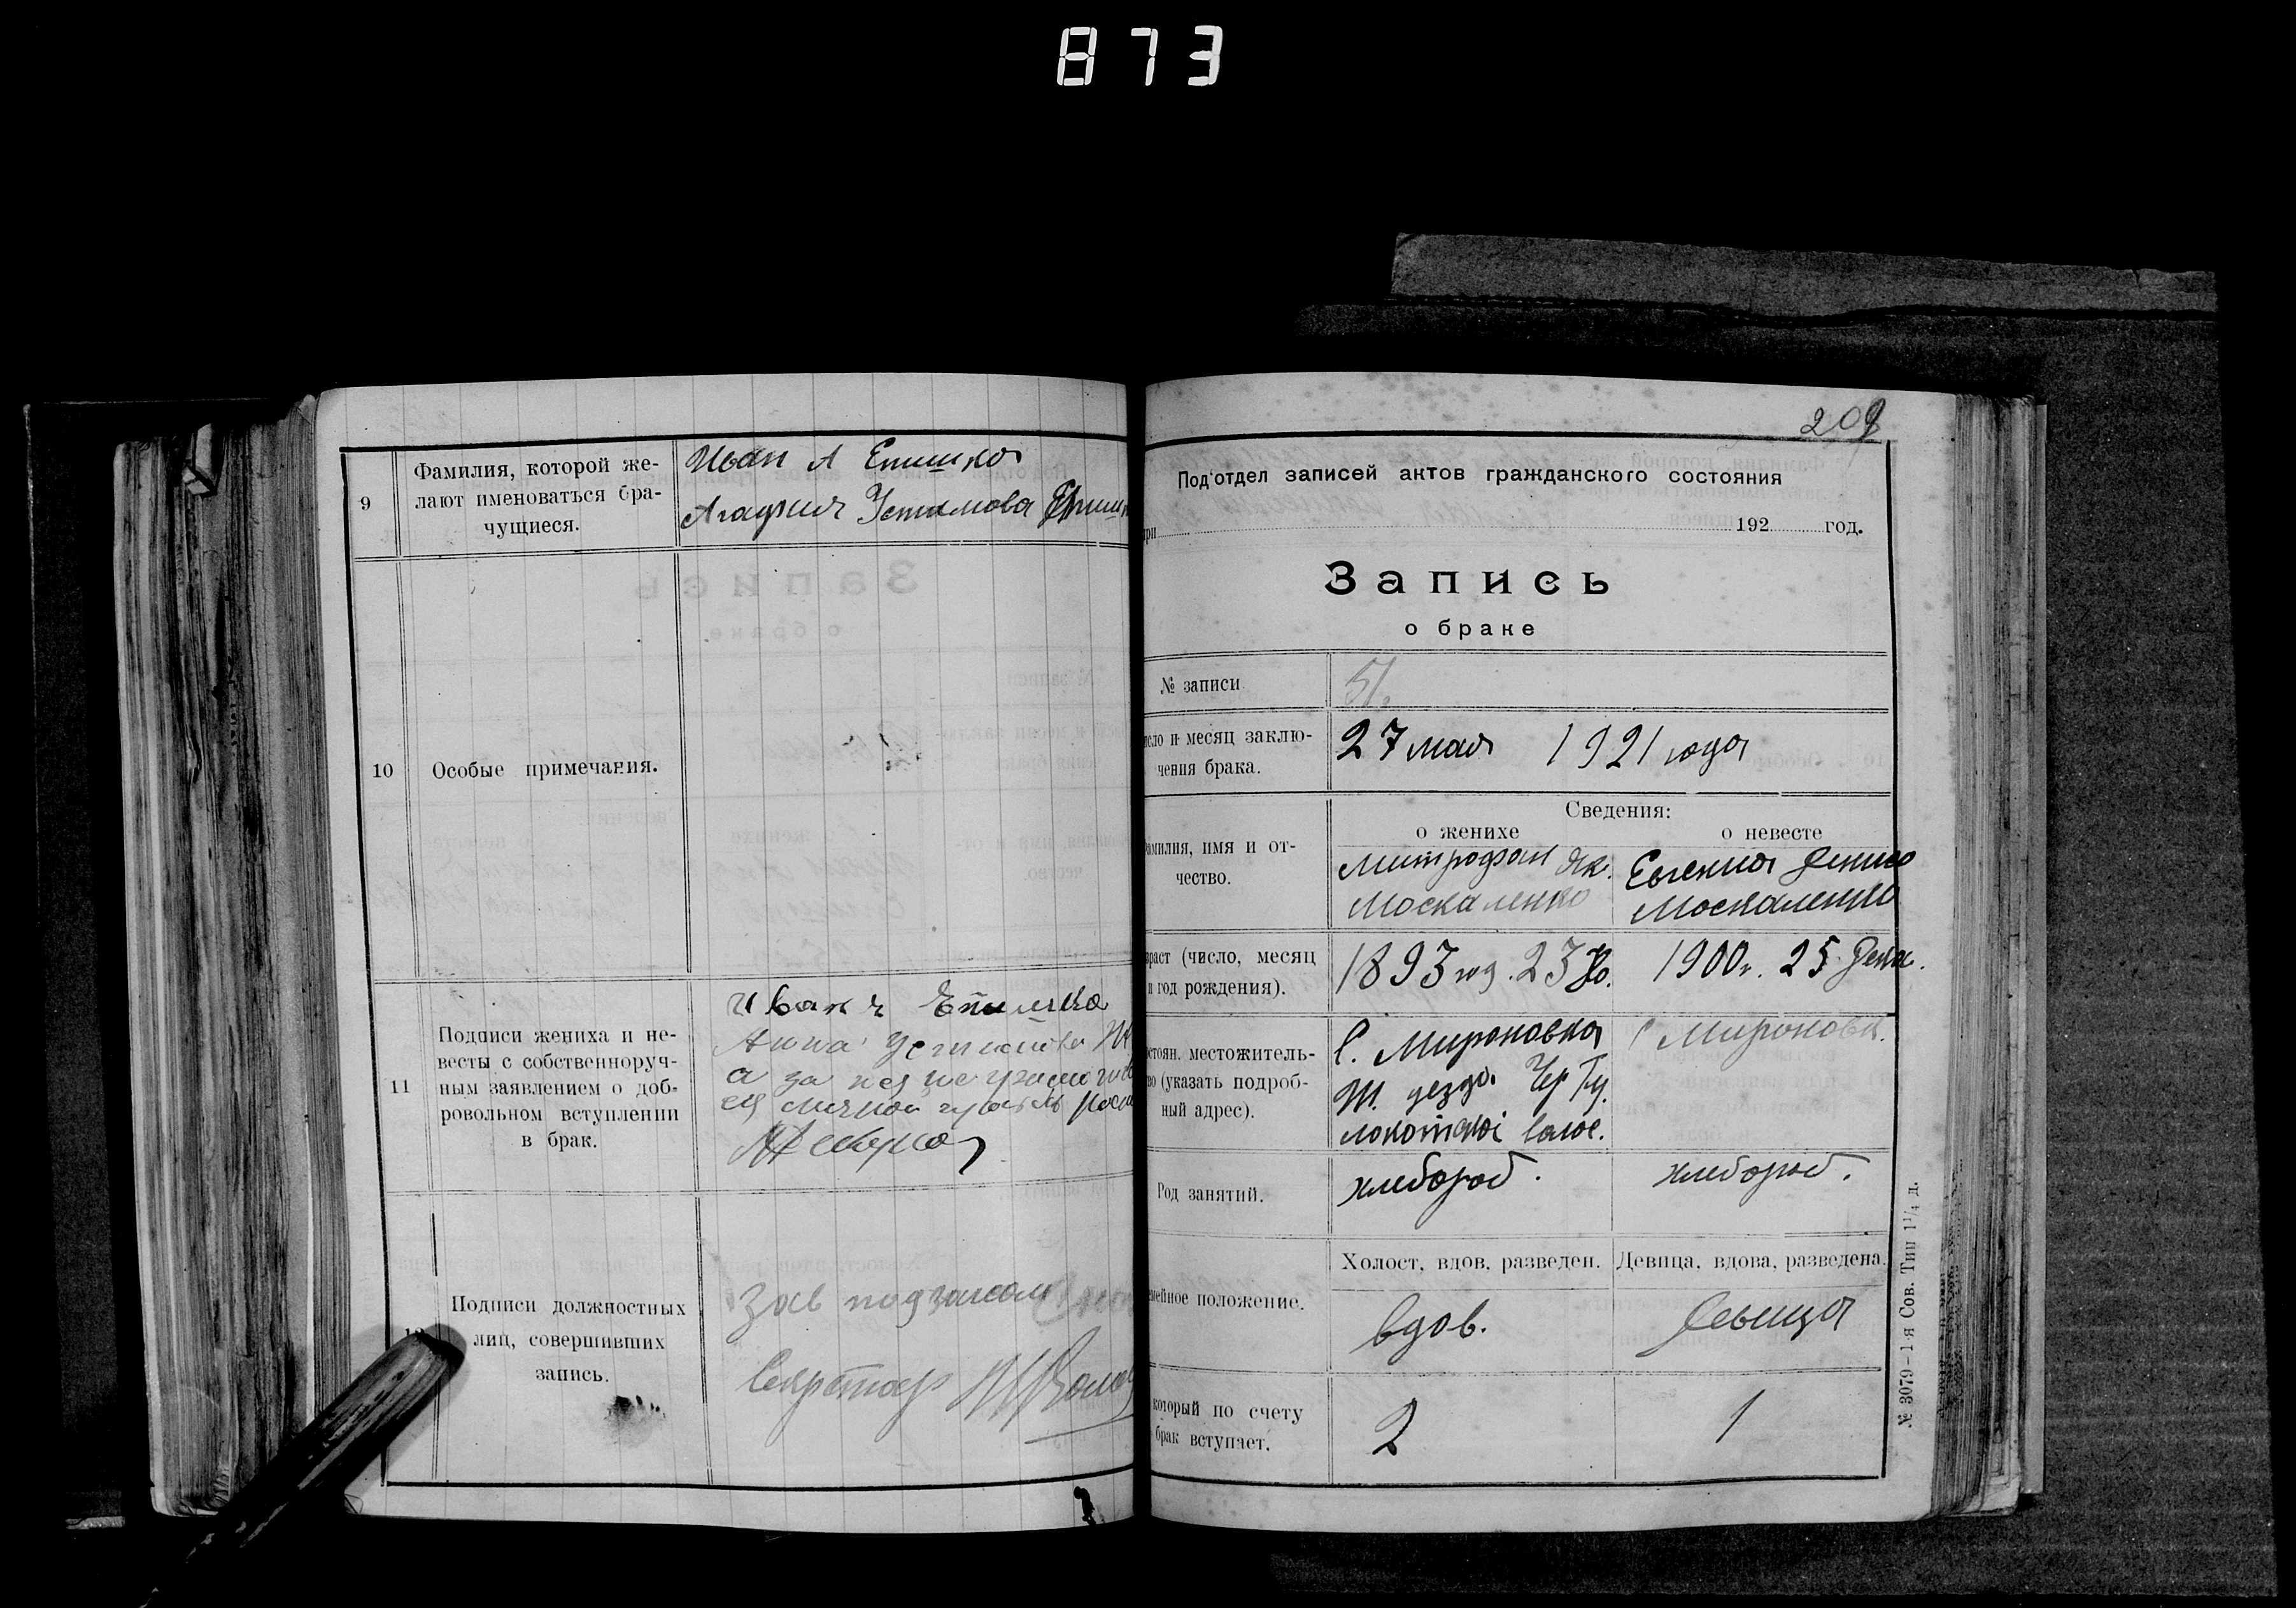 873
9
Фамилия, которой же-
лают именоваться бра-
чущиеся.
Иван А Епишко
Агафия Устимова
10
Особые примечания.
11
Подписи жениха и не-
весты с собственноруч-
ным заявлением о доб-
ровольном вступлении
в брак.
Иван Епишко
Анна
а за
личной
Подписи должностных
лиц, совершивших
запись.
Зав
Секретарь
209
Под'отдел записей актов гражданского состояния
при 192 год.
Запись
о браке
№ записи
51.
число и месяц заклю-
чения брака.
27 мая 1921 года
Сведения:
о женихе
о невесте
Фамилия, имя и от-
чество.
Митрофан Як.
Москаленко
Евгения Денис
Москаленко
Возраст (число, месяц
и год рождения).
1893 год. 23
1900 г. 25 Дека.
Постоян. местожитель-
ство (указать подроб-
ный адрес).
С. Мироновка
уезда. Чер Гу.
волос.
С Мироновк.
Род занятий.
хлебороб.
хлебороб.
Семейное положение.
Холост, вдов, разведен.
Девица, вдова, разведена.
вдов.
девица
который по счету
брак вступает.
2
1
№ 3079-1-я Сов. Тип 1 1/4 д.